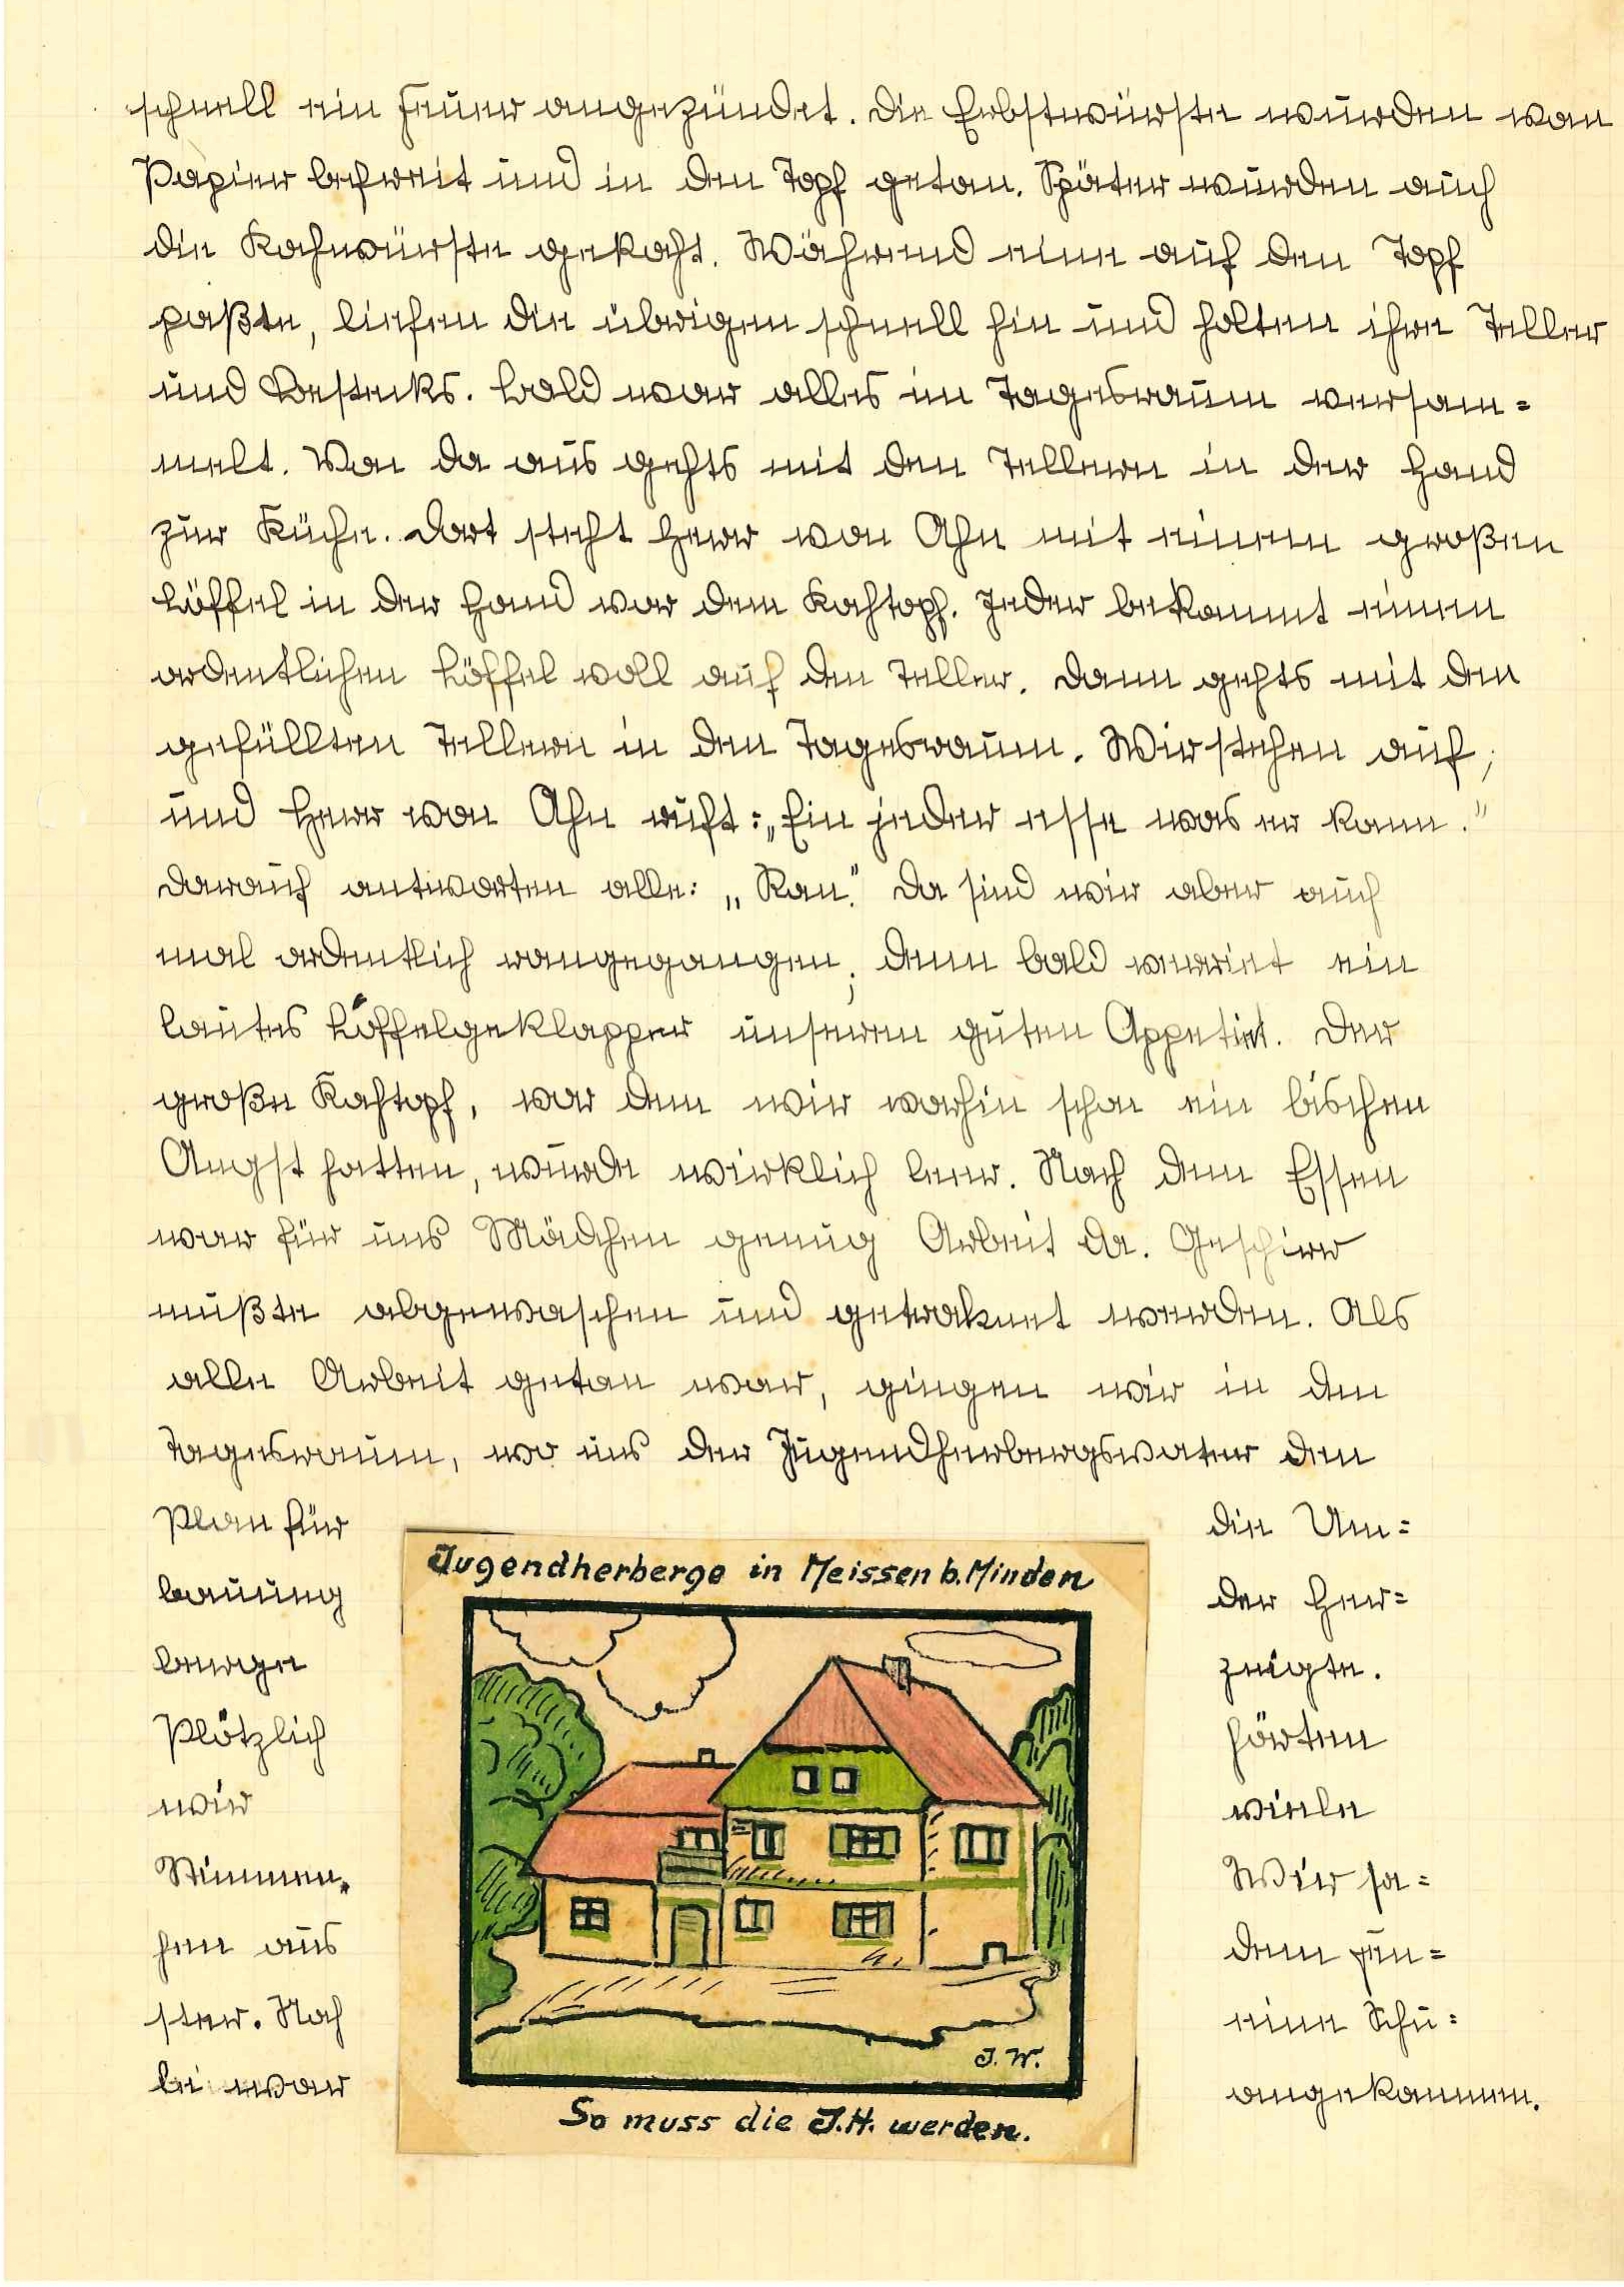 schnell ein Feuer angezündet. Die Erbstwürste wurden von
Papier befreit und in den Topf getan. Später wurden auch
die Kochwürste gekocht. Während eine auf den Topf
paßte, liefen die übrigen schnell hin und holten ihre Teller
und Bestecks. Bald war alles im Tagesraum versam=
melt. Von da aus gehts mit den Tellern in der Hand
zur Küche. Dort steht Herr von Ahn mit einem großen
Löffel in der Hand vor dem Kochtopf. Jeder bekommt einen
ordentlichen Löffel voll auf den Teller. Dann gehts mit den
gefüllten Tellern in den Tagesraum. Wir stehen auf;
und Herr von Ahn ruft: „Ein jeder esse was er kann."
Darauf antworten alle: „Ran." Da sind wir aber auch
mal ordentlich rangegangen; denn bald verriet ein
lautes Löffelgeklapper unseren guten Appetit. Der
große Kochtopf, vor dem wir vorhin schon ein bischen
Angst hatten, wurde wirklich leer. Nach dem Essen
war für uns Mädchen genug Arbeit da. Geschirr
mußte abgewaschen und getroknet werden. Als
alle Arbeit getan war, gingen wir in den
Tagesraum, wo uns der Jugendherbergsvater den
Plan für die Um=
bauung der Her=
berge zeigte.
Plötzlich hörten
wir viele
Stimmen. Wir sa=
hen aus dem Fen=
ster. Noch eine Schu=
le war angekommen.
Jugendherberge in Meissen b. Minden
J. W.
So muss die J.H. werden.